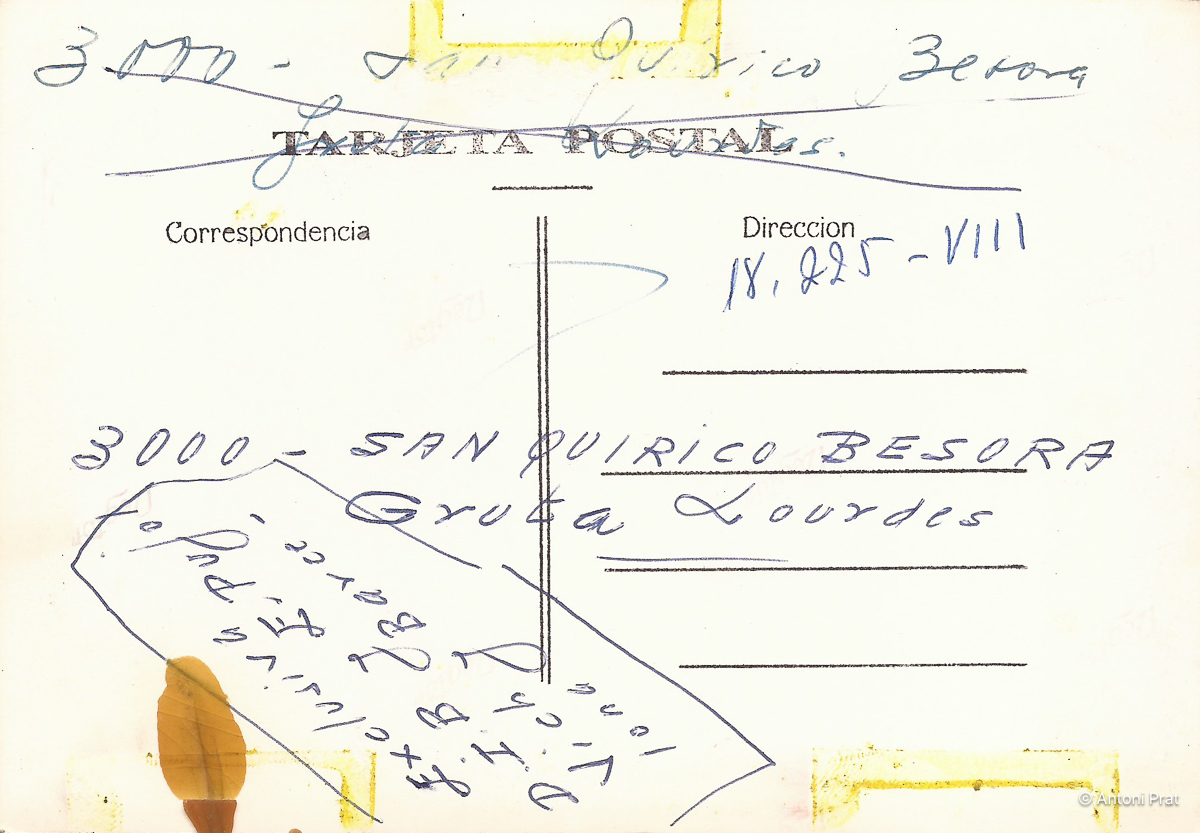 3000 - San Quirico Besora
Gruta Lourdes.
TARJETA POSTAL
Correspondencia
Direccion
18.225 - VIII
3000 - SAN QUIRICO BESORA
Gruta Lourdes
Exclusiva E. Pujol
D. I. B.
Vich
Barce
lona
© Antoni Prat